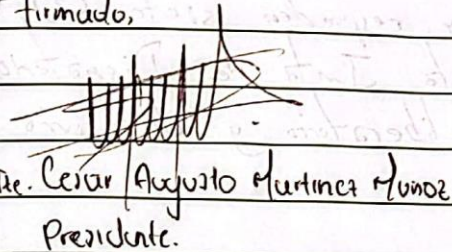 firmado,
Cesar Augusto Martinez Munoz
Presidente.